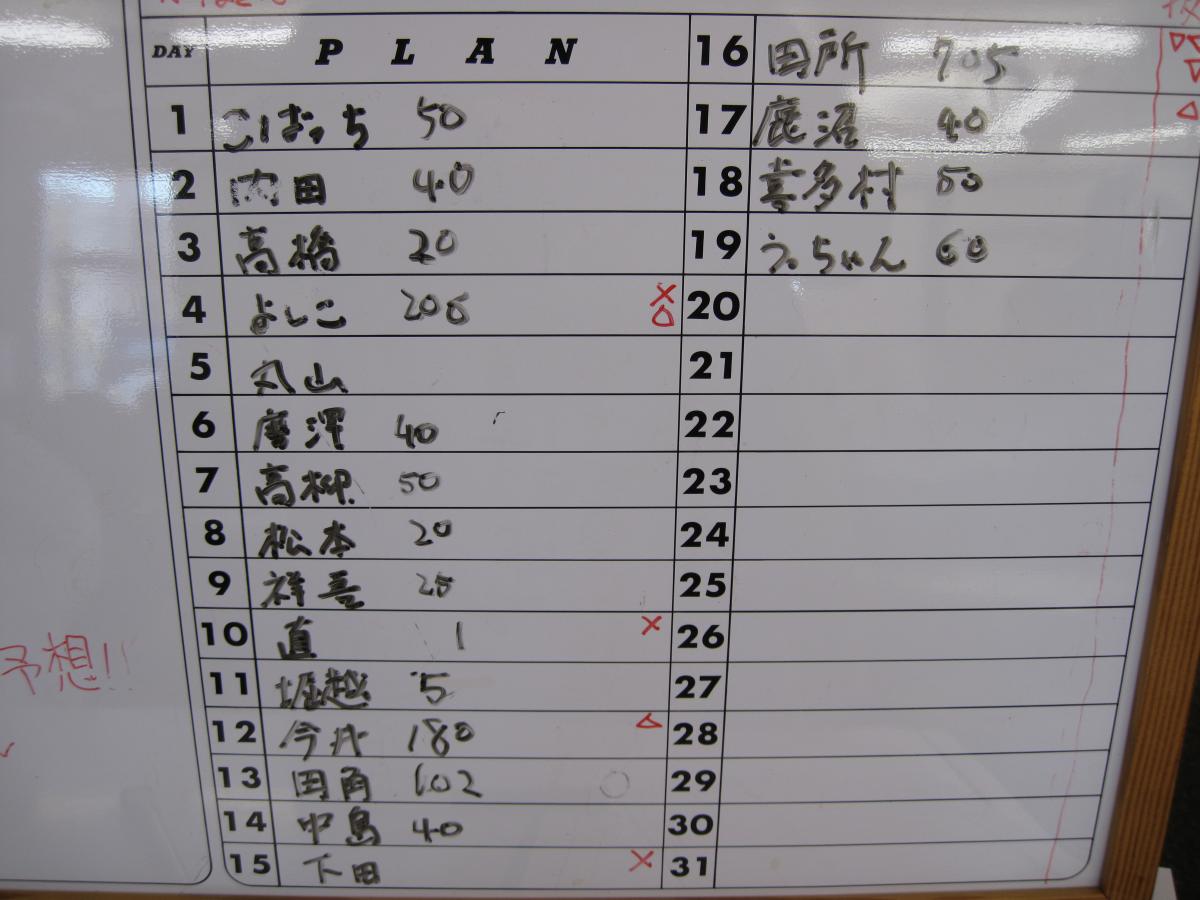 DAY PLAN
1 こばっち 50
2 内田 40
3 高橋 20
4 よしこ 200 ×
5 丸山
6 唐澤 40
7 高柳 50
8 松本 20
9 祥吾 20
10 直 1 ×
11 堀越 5
12 今井 180 △
13 田角 102 ○
14 中島 40
15 下田 ×
16 田所 705
17 鹿沼 40
18 喜多村 50
19 うっちゃん 60
20
21
22
23
24
25
26
27
28
29
30
31
予想!!